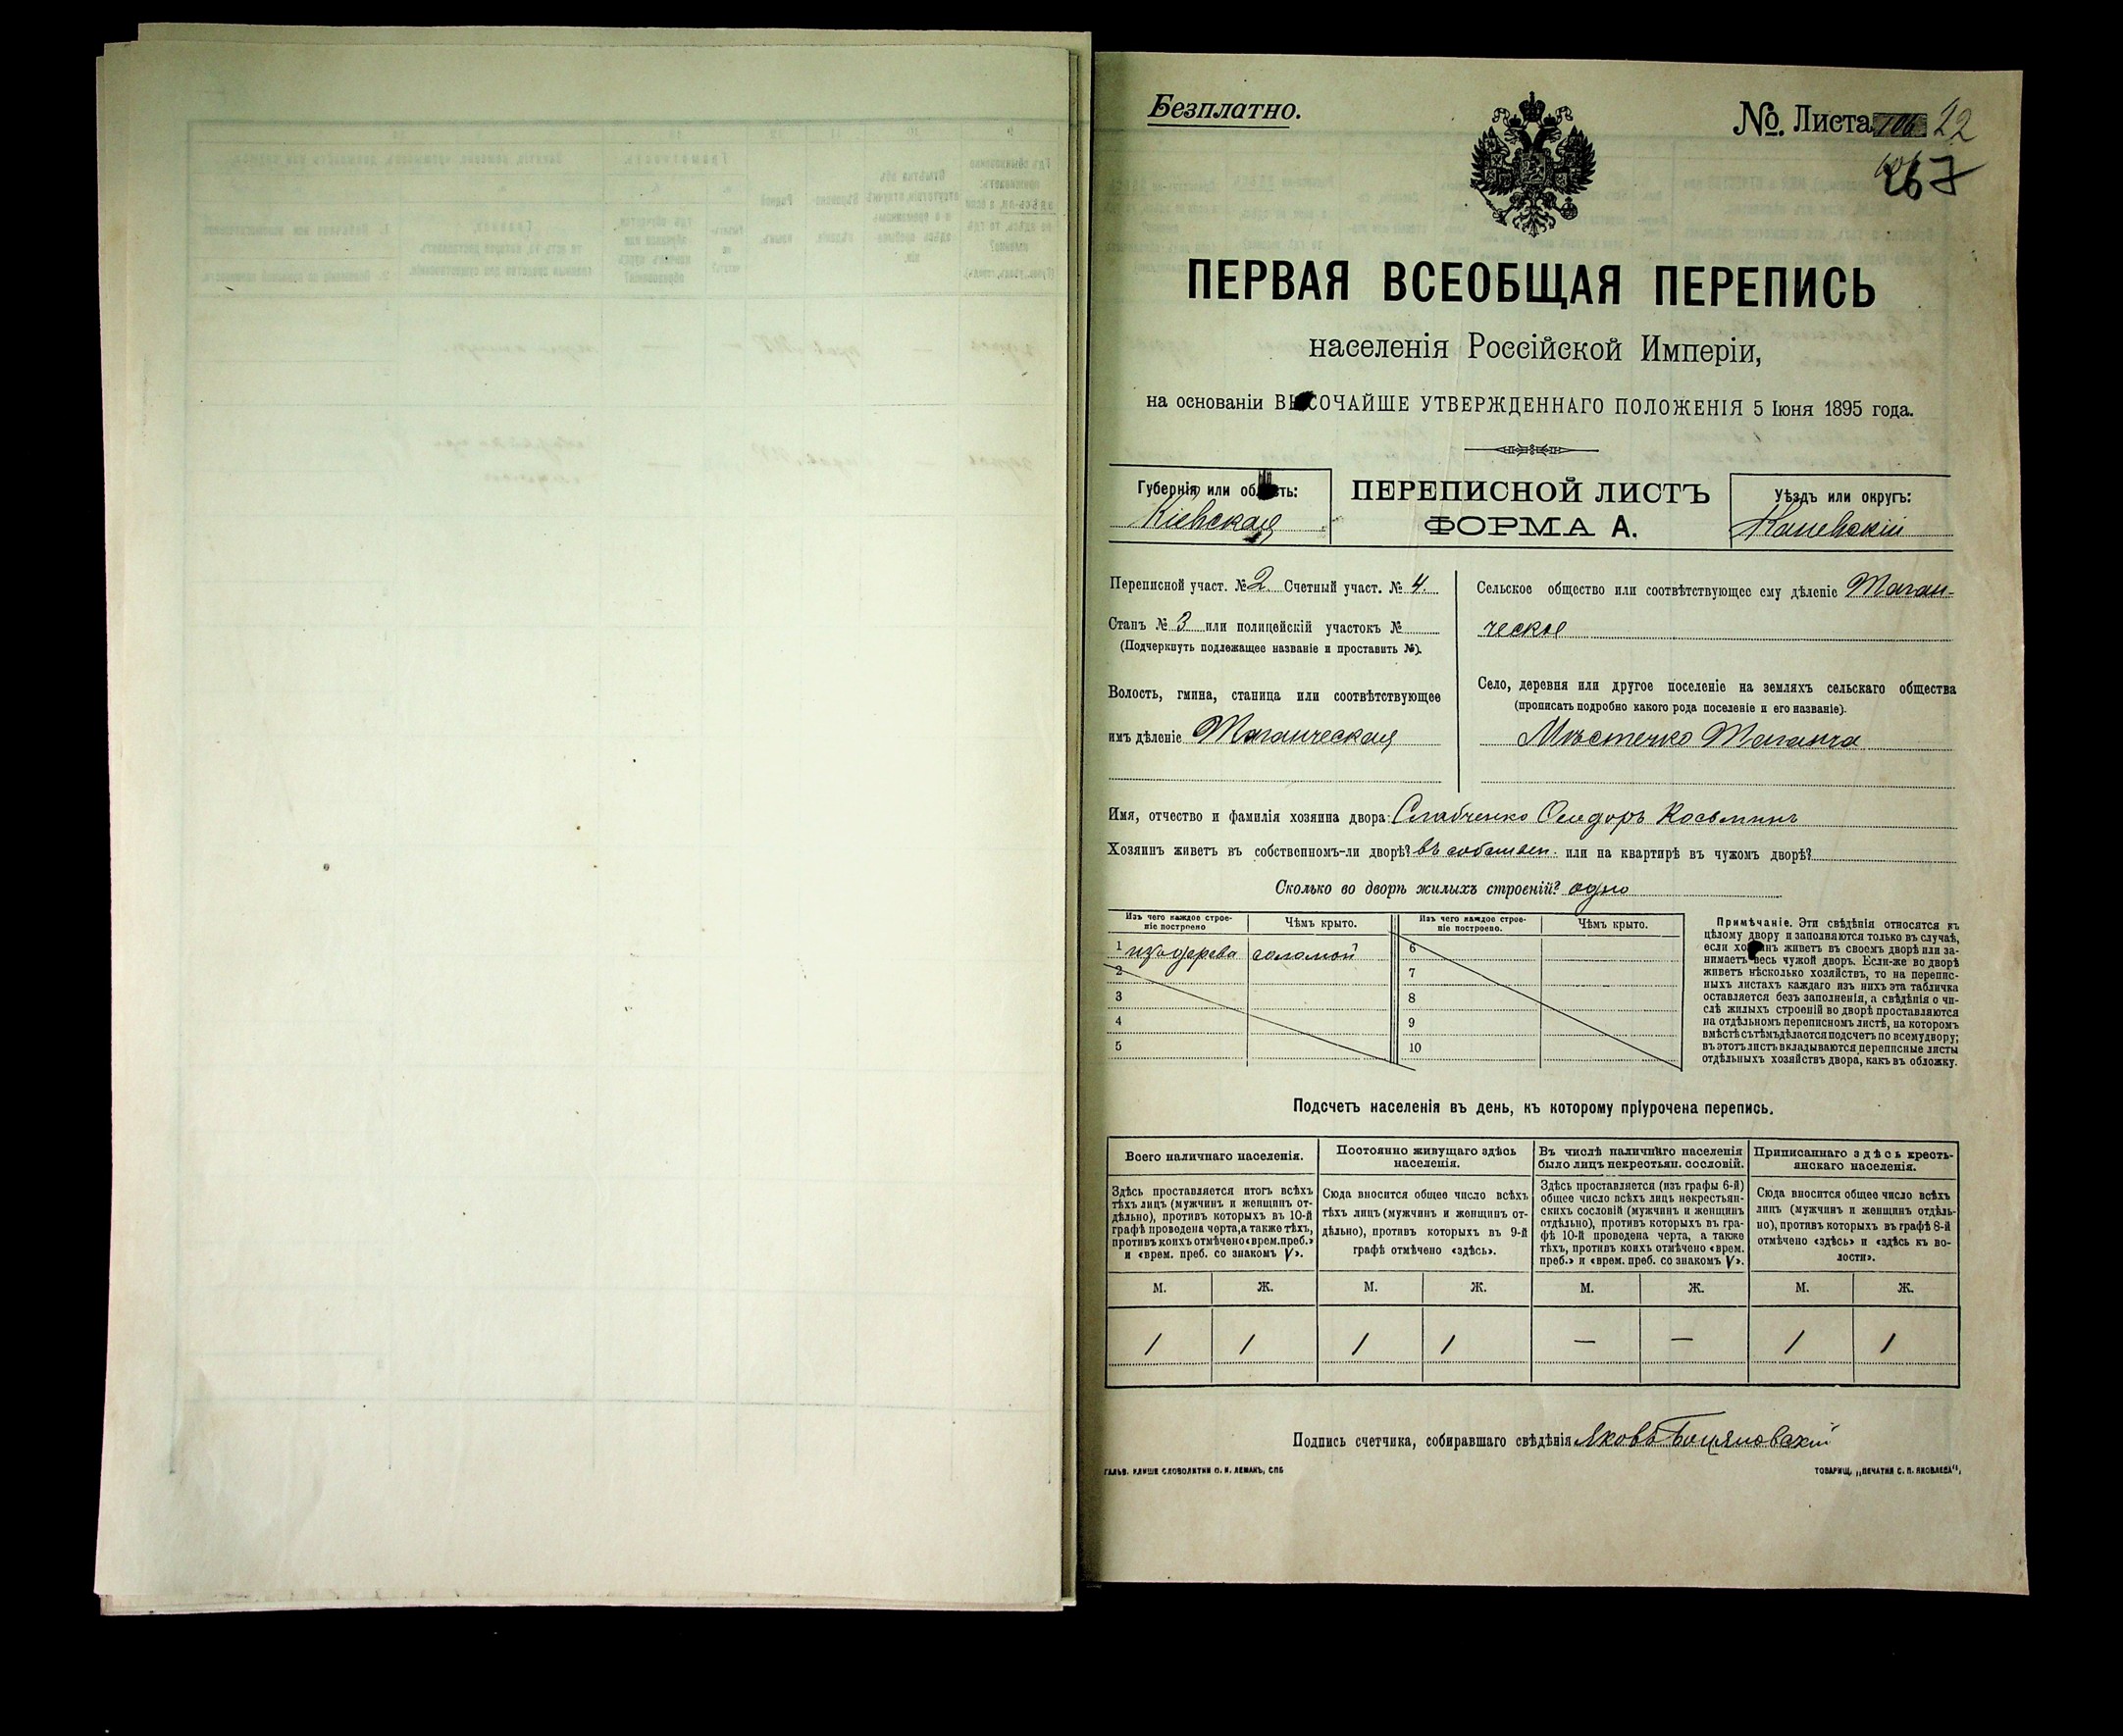 Безплатно.
№ Листа 106 22
267
ПЕРВАЯ ВСЕОБЩАЯ ПЕРЕПИСЬ
населенія Россійской Имперіи,
на основаніи ВЫСОЧАЙШЕ УТВЕРЖДЕННАГО ПОЛОЖЕНІЯ 5 Іюня 1895 года.
Губернія или область:
Кіевская
ПЕРЕПИСНОЙ ЛИСТЪ
ФОРМА А.
Уѣздъ или округъ:
Каневскій
Переписной участ. № 2. Счетный участ. № 4.
Станъ № 3 или полицейскій участокъ №
(Подчеркнуть подлежащее названіе и проставить №).
Волость, гмина, станица или соотвѣтствующее
имъ дѣленіе Таганческая
Сельское общество или соотвѣтствующее ему дѣленіе Таган-
ческое
Село, деревня или другое поселеніе на земляхъ сельскаго общества
(прописать подробно какого рода поселеніе и его названіе).
Мѣстечко Таганча
Имя, отчество и фамилія хозяина двора: Слабченко Сидоръ Косьминъ
Хозяинъ живетъ въ собственномъ-ли дворѣ? въ собствен. или на квартирѣ въ чужомъ дворѣ?
Сколько во дворѣ жилыхъ строеній? одно
Изъ чего каждое строе-
ніе построено
Чѣмъ крыто.
Изъ чего каждое строе-
ніе построено.
Чѣмъ крыто.
1 изъ дерева соломой
2
3
4
5
6
7
8
9
10
Примѣчаніе. Эти свѣдѣнія относятся къ
цѣлому двору и заполняются только въ случаѣ,
если хозяинъ живетъ въ своемъ дворѣ или за-
нимаетъ весь чужой дворъ. Если-же во дворѣ
живетъ нѣсколько хозяйствъ, то на перепис-
ныхъ листахъ каждаго изъ нихъ эта табличка
оставляется безъ заполненія, а свѣдѣнія о чи-
слѣ жилыхъ строеній во дворѣ проставляются
на отдѣльномъ переписномъ листѣ, на которомъ
вмѣстѣ съ тѣмъ дѣлается подсчетъ по всему двору;
въ этотъ листъ вкладываются переписные листы
отдѣльныхъ хозяйствъ двора, какъ въ обложку.
Подсчетъ населенія въ день, къ которому пріурочена перепись.
Всего наличнаго населенія.
Здѣсь проставляется итогъ всѣхъ
тѣхъ лицъ (мужчинъ и женщинъ от-
дѣльно), противъ которыхъ въ 10-й
графѣ проведена черта, а также тѣхъ,
противъ коихъ отмѣчено «врем. преб.»
и «врем. преб. со знакомъ V».
Постоянно живущаго здѣсь
населенія.
Сюда вносится общее число всѣхъ
тѣхъ лицъ (мужчинъ и женщинъ от-
дѣльно), противъ которыхъ въ 9-й
графѣ отмѣчено «здѣсь».
Въ числѣ наличнаго населенія
было лицъ некрестьян. сословій.
Здѣсь проставляется (изъ графы 6-й)
общее число всѣхъ лицъ некрестьян-
скихъ сословій (мужчинъ и женщинъ
отдѣльно), противъ которыхъ въ гра-
фѣ 10-й проведена черта, а также
тѣхъ, противъ коихъ отмѣчено «врем.
преб.» и «врем. преб. со знакомъ V».
Приписаннаго здѣсь кресть-
янскаго населенія.
Сюда вносится общее число всѣхъ
лицъ (мужчинъ и женщинъ отдѣль-
но), противъ которыхъ въ графѣ 8-й
отмѣчено «здѣсь» и «здѣсь къ во-
лости».
М. Ж. М. Ж. М. Ж. М. Ж.
1 1 1 1 — — 1 1
Подпись счетчика, собиравшаго свѣдѣнія Яковъ Боцяновскій
ГАЛЬВ. КЛИШЕ СЛОВОЛИТНИ О. И. ЛЕМАНЪ, СПБ
ТОВАРИЩ. „ПЕЧАТНЯ С. П. ЯКОВЛЕВА“,